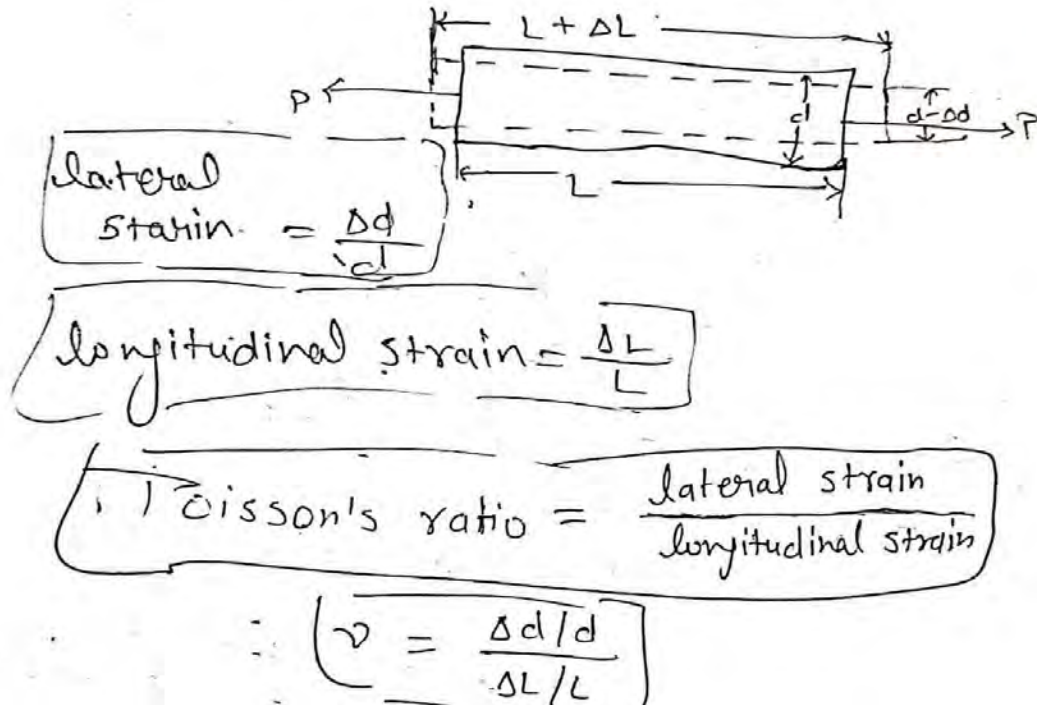 L + ΔL
P
d
d-Δd
P
L
lateral
starin = Δd/d
longitudinal strain = ΔL/L
Poisson's ratio = lateral strain/longitudinal strain
∴ ν = Δd/d / ΔL/L